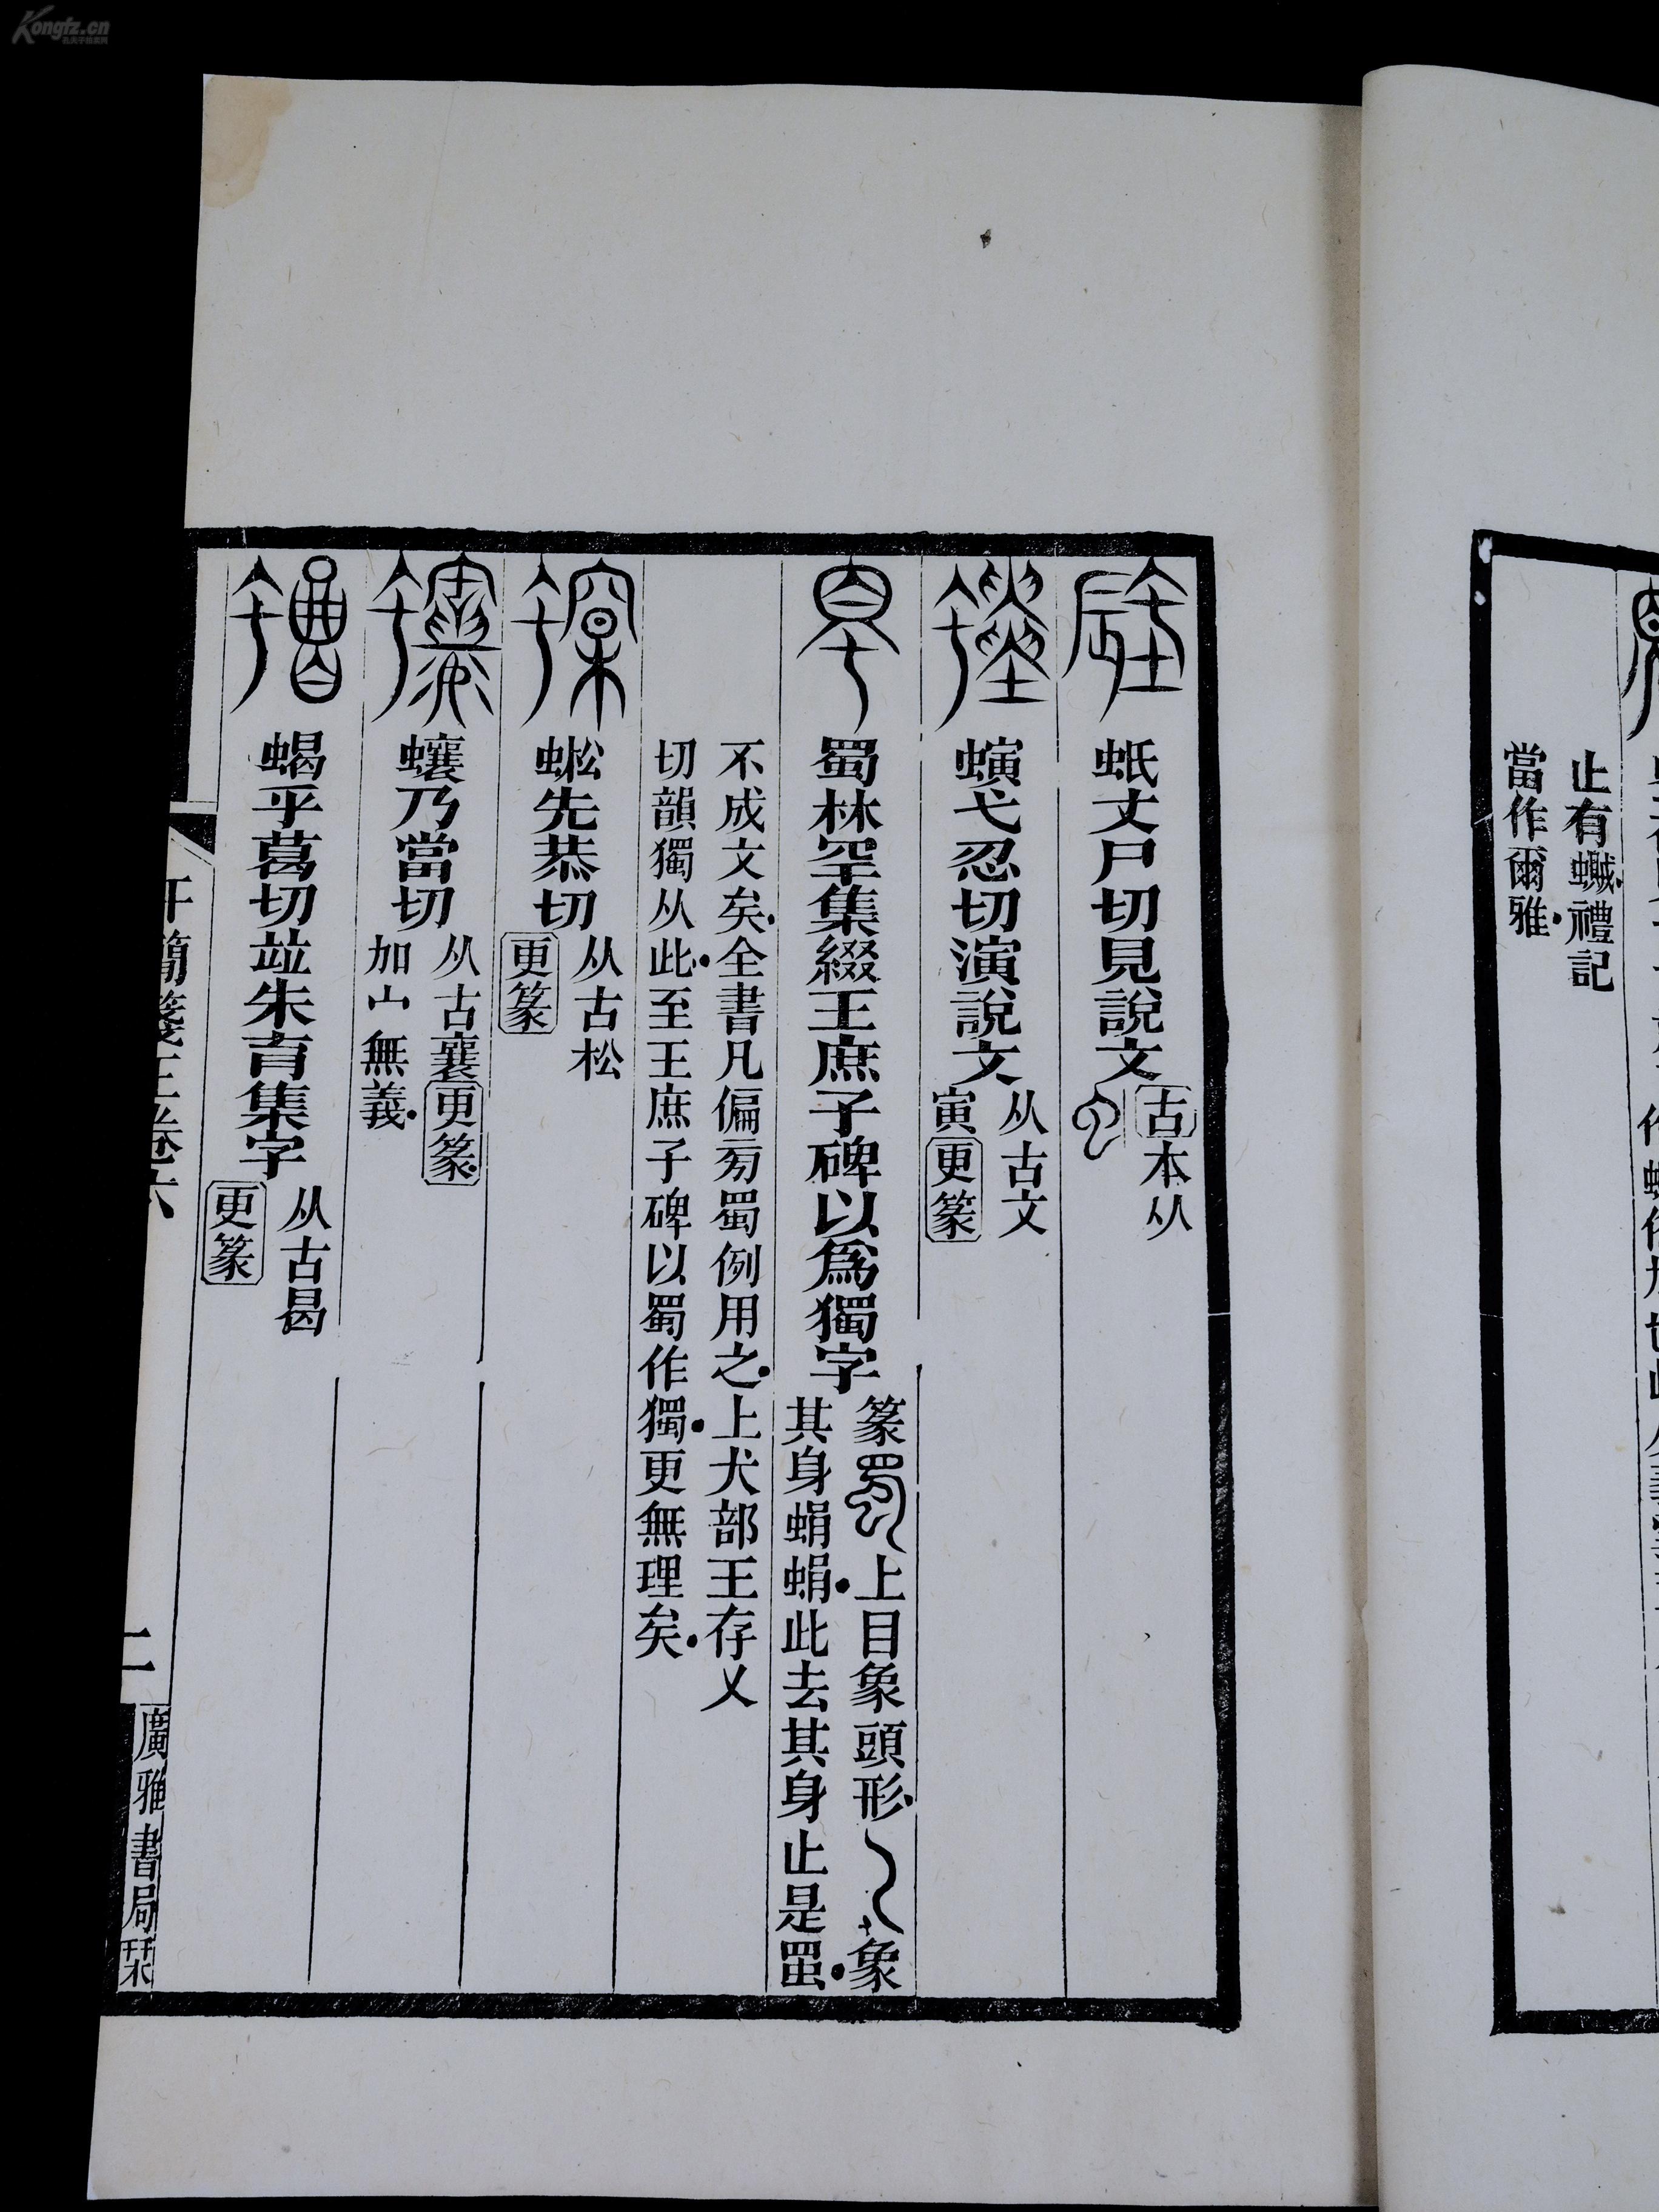 止有蠘禮記
當作爾雅
蚳丈尸切見說文
古本从
螾弋忍切演說文
从古文
寅更篆
蜀林罕集綴王庶子碑以爲獨字
篆上目象頭形象
其身蜎蜎此去其身止是䖵
不成文矣全書凡偏㫄蜀例用之上犬部王存乂
切韻獨从此至王庶子碑以蜀作獨更無理矣
蜙先恭切
从古松
更篆
蠰乃當切
从古襄更篆
加山無義
蝎乎葛切竝朱育集字
从古曷
更篆
汗簡箋正卷六
二
廣雅書局栞
Kongfz.cn
孔夫子旧书网